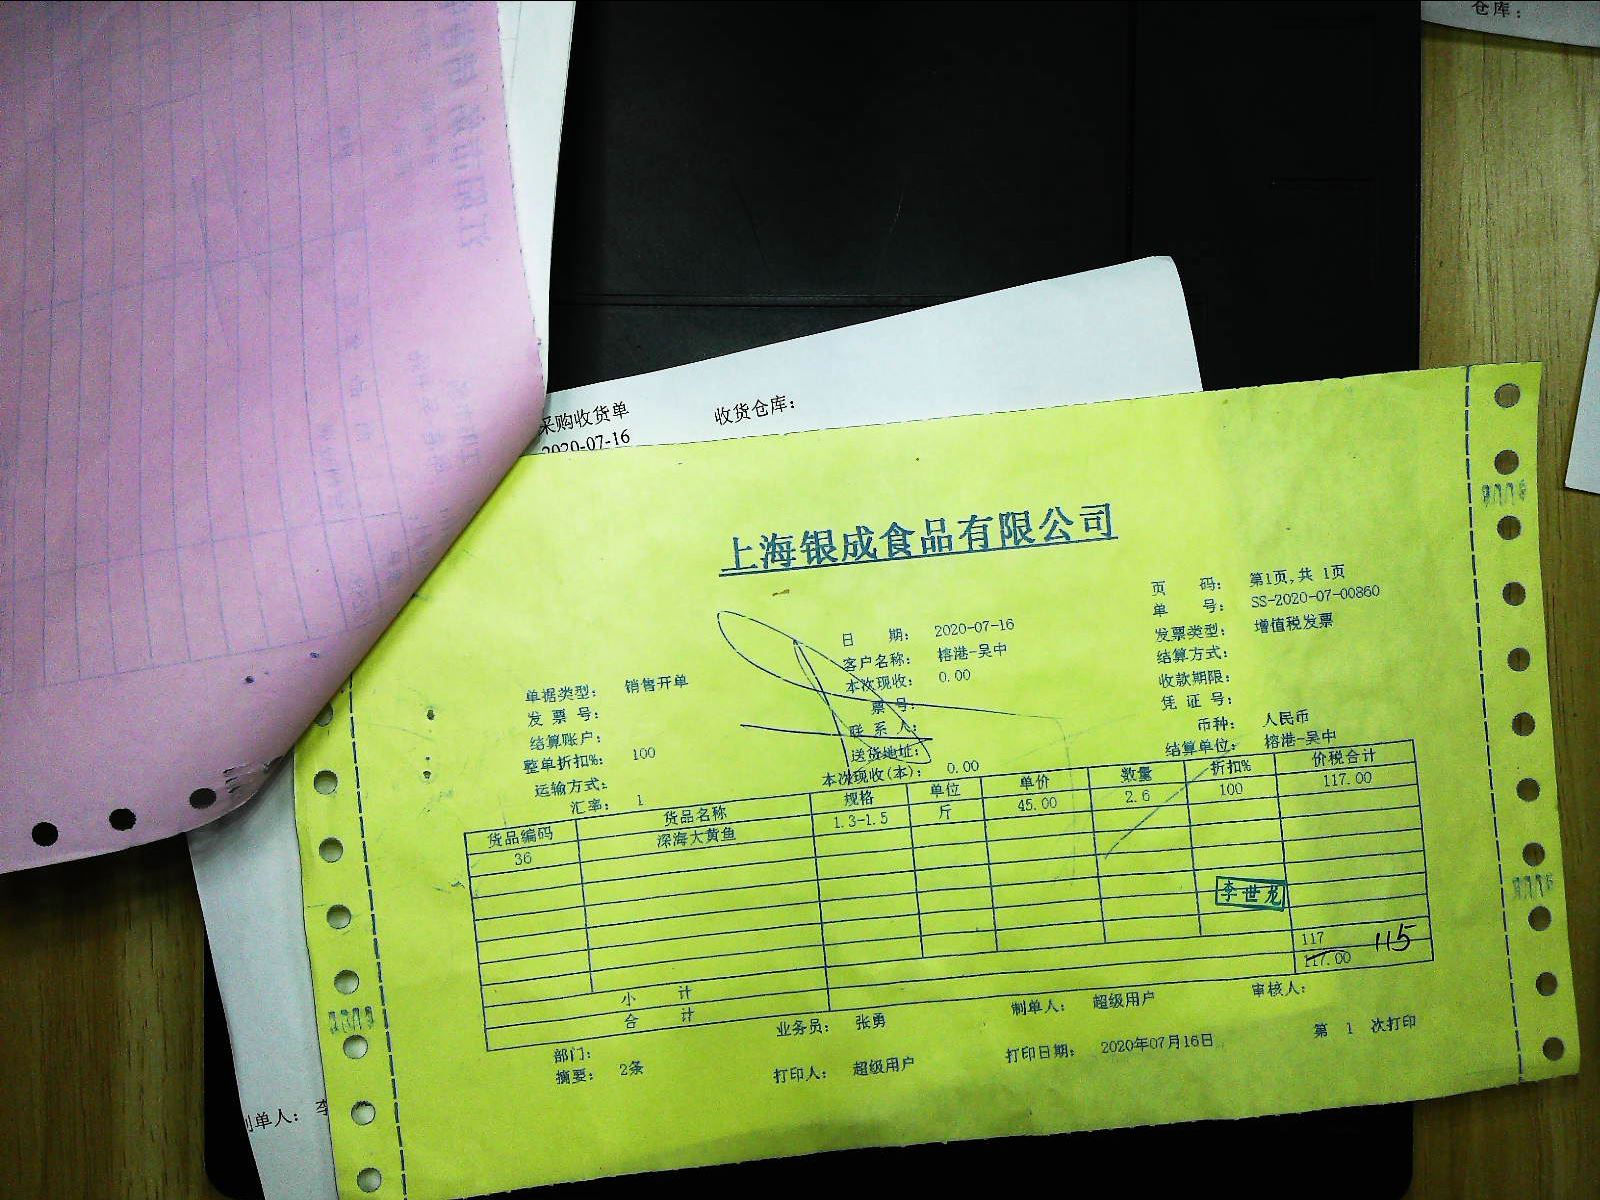 仓库：
采购收货单 收货仓库：
2020-07-16
上海银成食品有限公司
页 码： 第1页,共 1页
单 号： SS-2020-07-00860
日 期： 2020-07-16
发票类型： 增值税发票
客户名称： 榕港-吴中
结算方式：
单据类型： 销售开单
本次现收： 0.00
收款期限：
发 票 号：
票 号：
凭 证 号：
结算账户：
联 系 人：
币种： 人民币
整单折扣%： 100
送货地址：
结算单位： 榕港-吴中
运输方式：
本次现收(本)： 0.00
汇率： 1
货品编码 货品名称 规格 单位 单价 数量 折扣% 价税合计
36 深海大黄鱼 1.3-1.5 斤 45.00 2.6 100 117.00
李世龙
小 计 117
合 计 117.00 115
部门： 业务员： 张勇 制单人： 超级用户 审核人：
摘要： 2条 打印人： 超级用户 打印日期： 2020年07月16日 第 1 次打印
制单人： 李